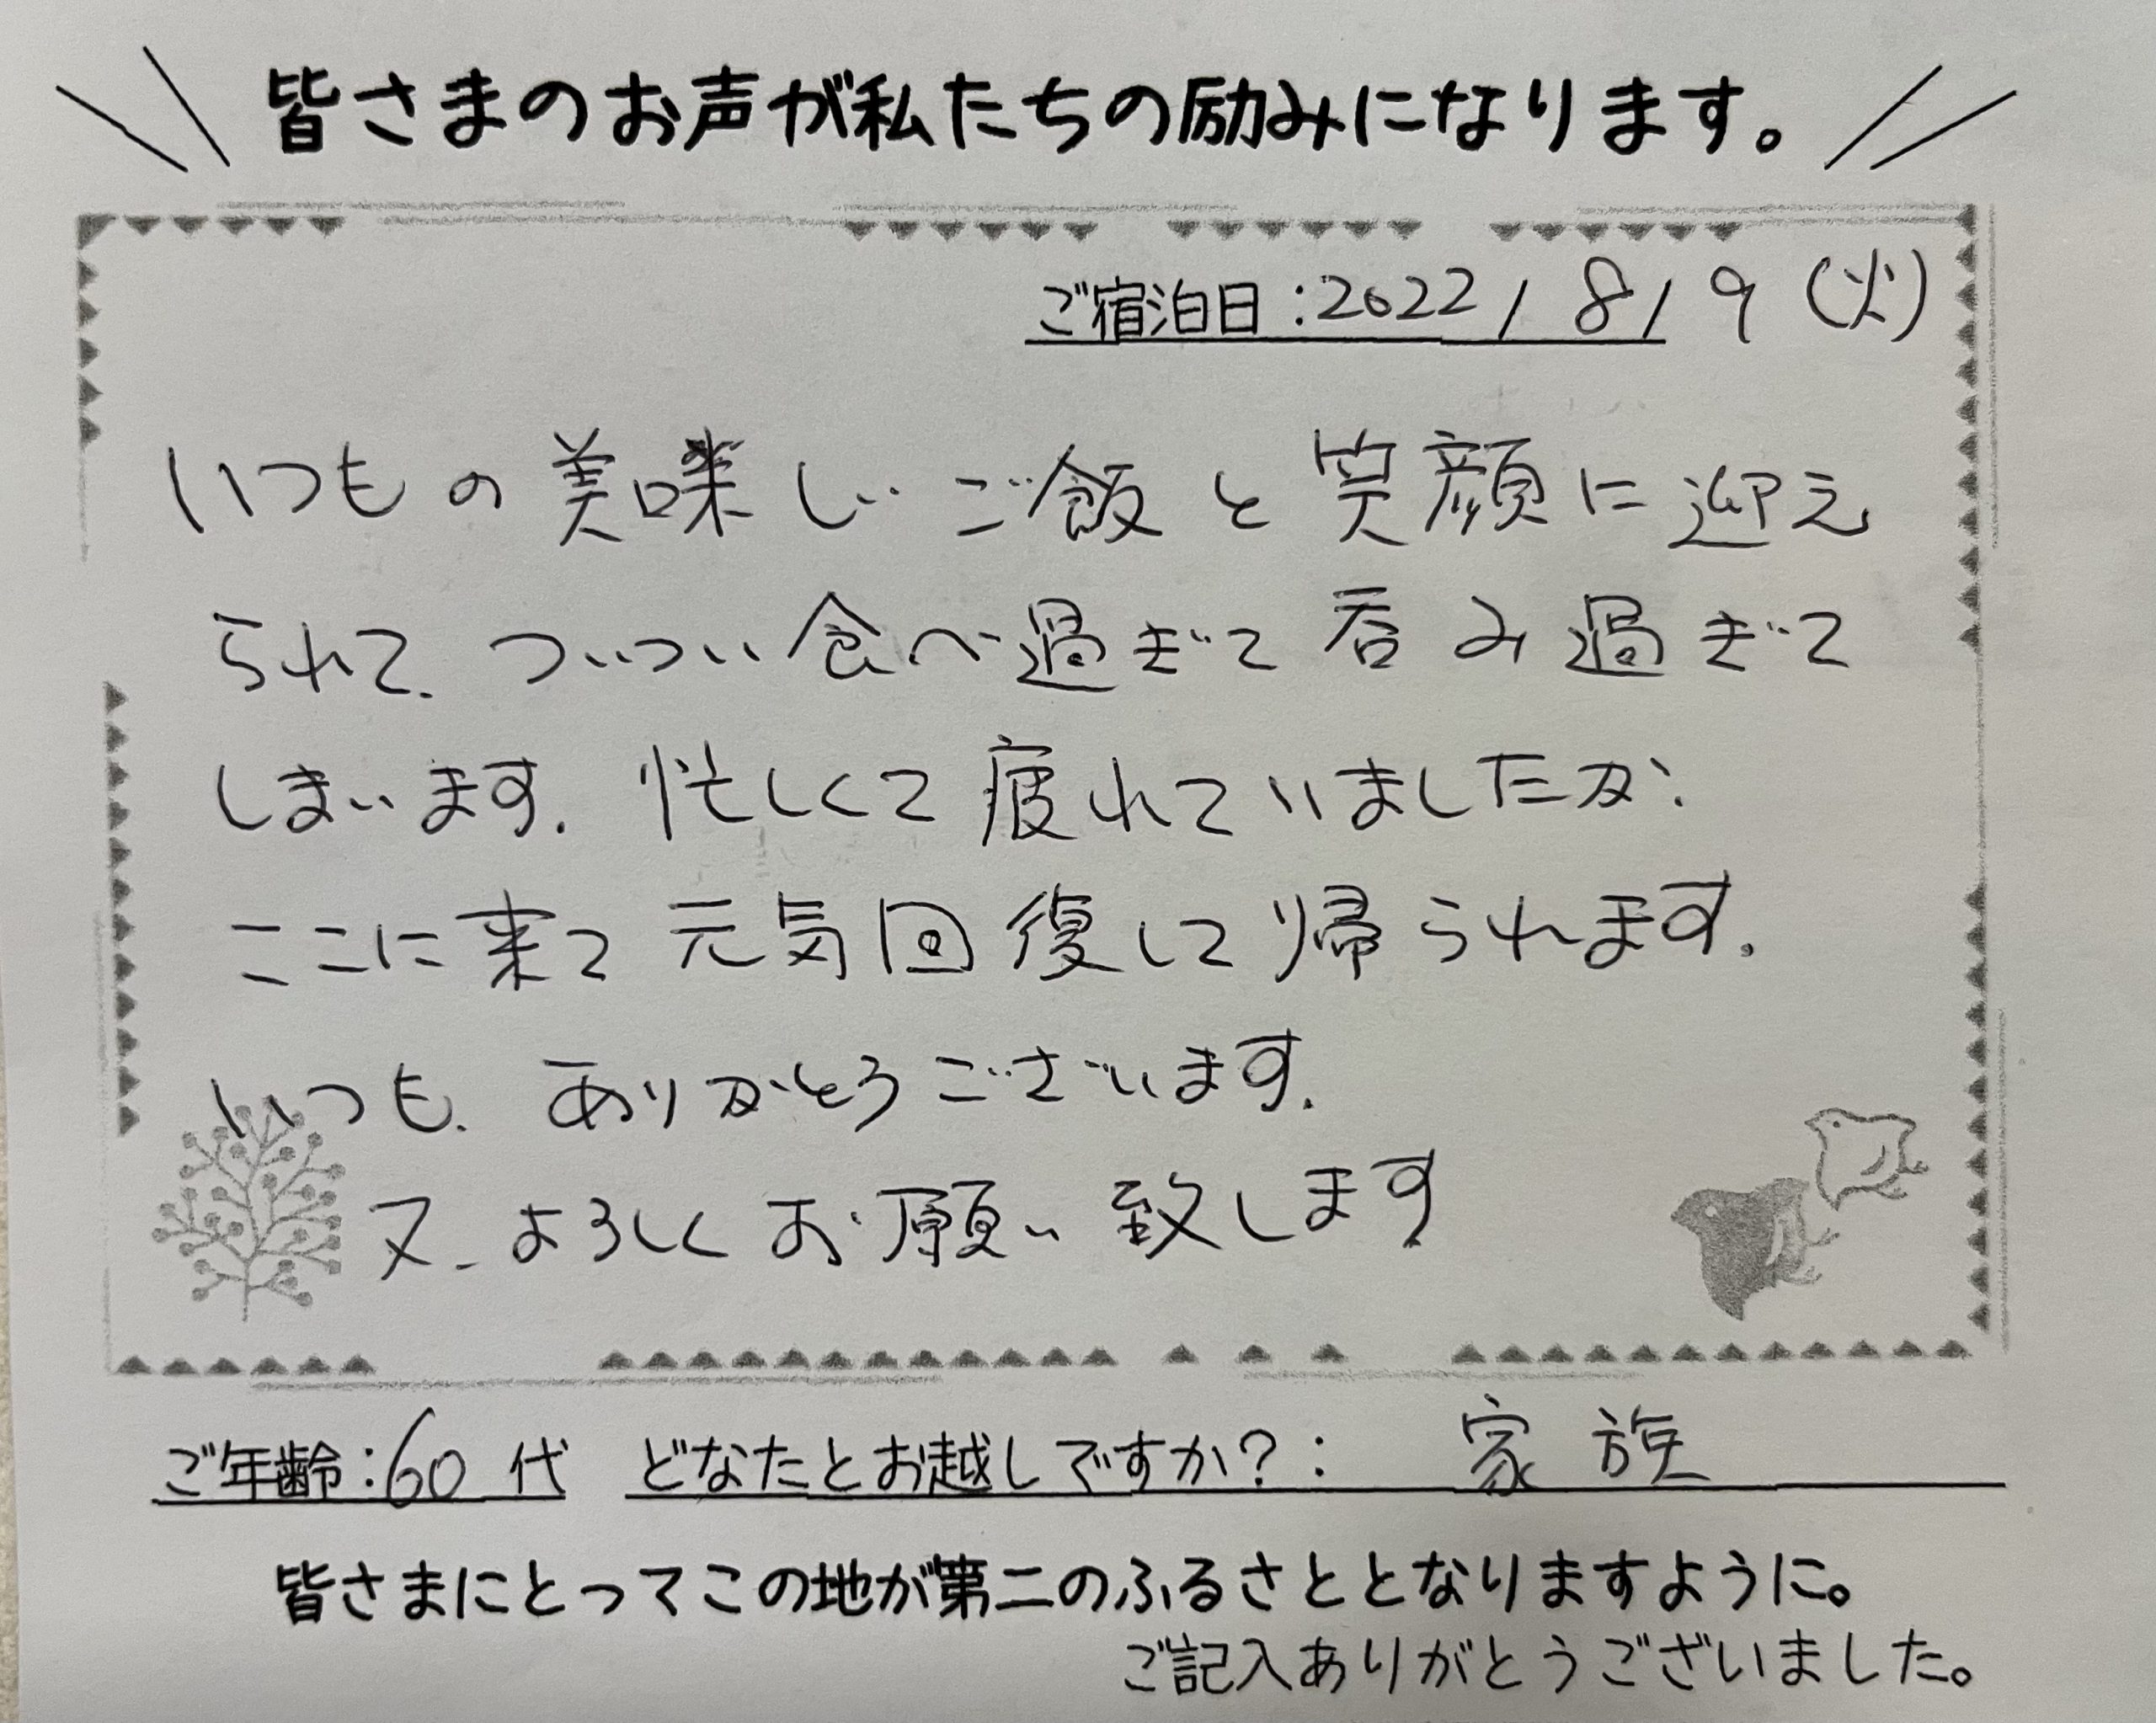 皆さまのお声が私たちの励みになります。
ご宿泊日:2022/8/9(火)
いつもの美味しいご飯と笑顔に迎え
られて、ついつい食べ過ぎて呑み過ぎて
しまいます。忙しくて疲れていましたが
ここに来て元気回復して帰られます。
いつも、ありがとうございます。
又、よろしくお願い致します
ご年齢:60代 どなたとお越しですか?: 家族
皆さまにとってこの地が第二のふるさととなりますように。
ご記入ありがとうございました。